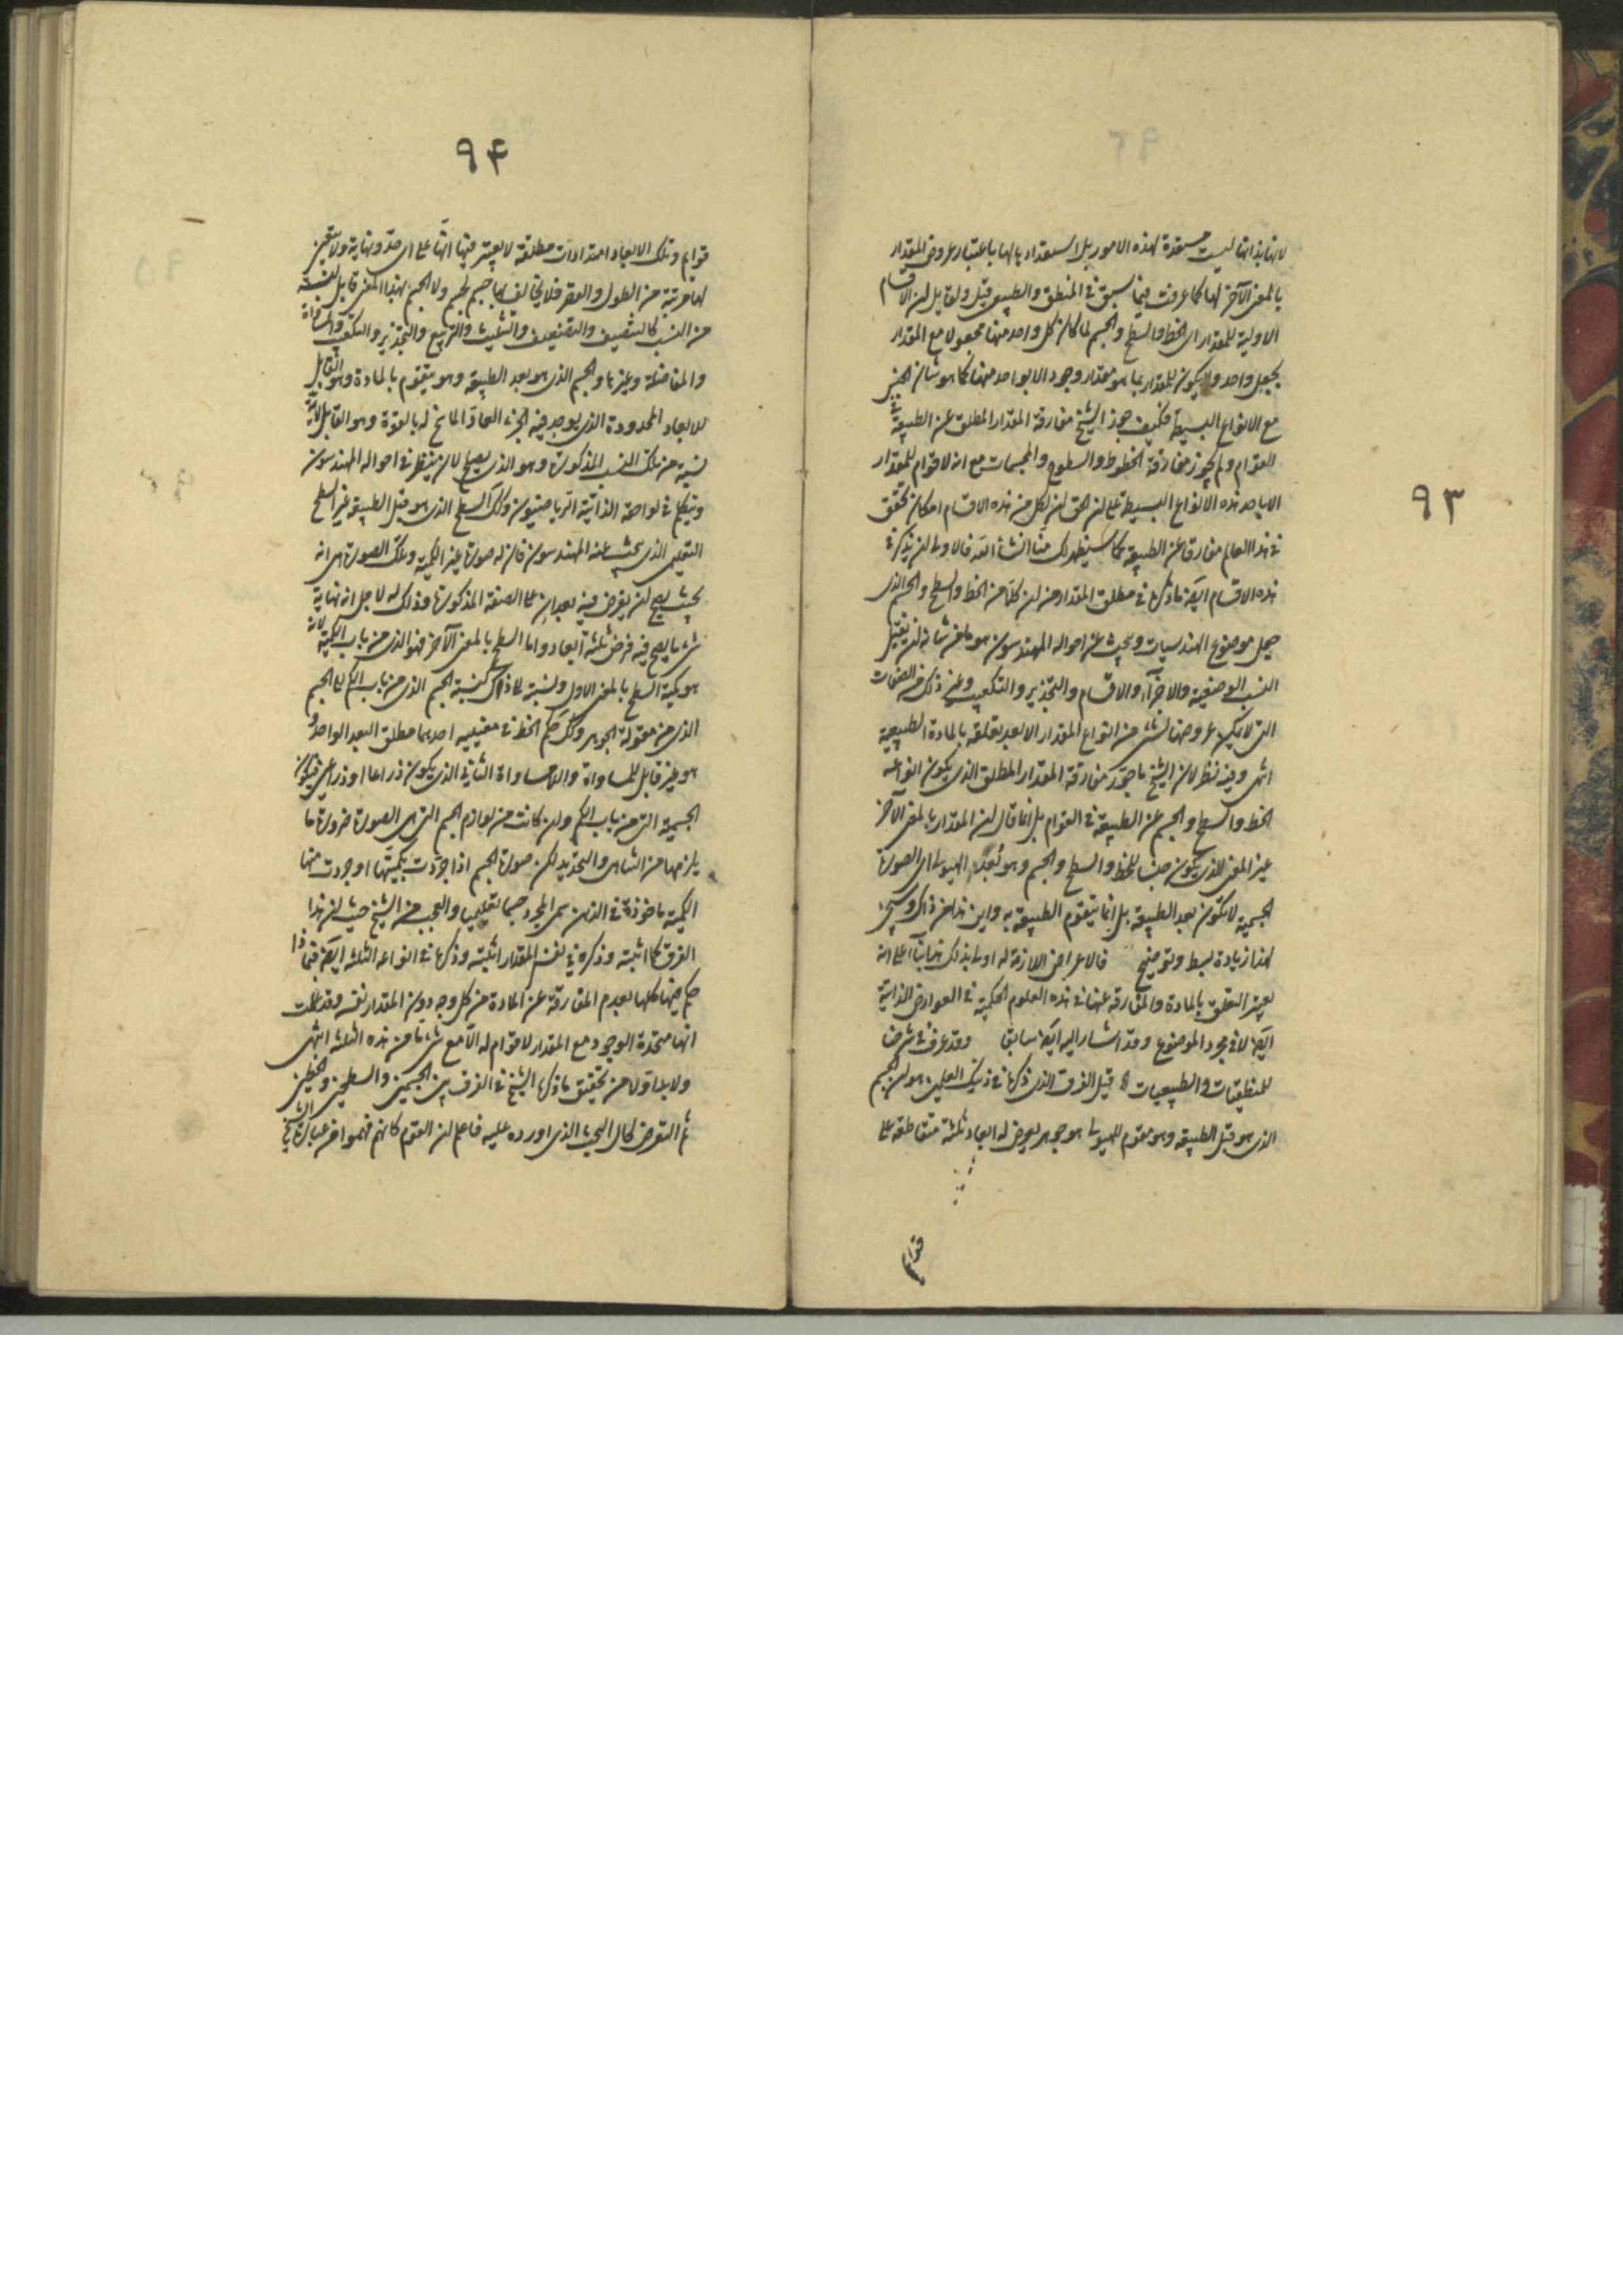 ٩٣
لانها بذاتها ليست مستعدة لهذه الامور بل استعدادها لها باعتبار عروض المقدار
بالمعنى الآخر لها كما عرفت فيما سبق فى المنطق والطبيعى قيل ولقايل ان الاقسام
الاولية للمقدار اى الخط والسطح والجسم لما كان كل واحد منها مجعولا مع المقدار
بجعل واحد ولا يكون للمقدار بما هو مقدار وجود الا بواحد منها كما هو شان الجنس
مع الانواع البسيطة فكيف جوز الشيخ مفارقة المقدار المطلق عن الطبيعة فى
القوام ولم يجوز مفارقة الخطوط والسطوح والمجسمات مع انه لا قوام للمقدار
الا باحد هذه الانواع البسيطة على ان الحق ان لكل من هذه الاقسام امكان تحقق
فى هذا العالم مفارقا عن الطبيعة كما سيظهر لك منا انشأ الله فالاولى ان يذكر فى
هذه الاقسام ايضا ما ذكره فى مطلق المقدار من ان كلا من الخط والسطح والجسم الذى
جعل موضوع الهندسيات ويبحث عن احواله المهندسون هو ما من شانه ان يقبل
النسب الوضعية والاجزآء والاقسام والتجذير والتكعيب وغير ذلك من الصفات
التى لا يمكن عروضها لشئ من انواع المقدار الا بعد تعلقه بالمادة الطبيعية
انتهى وفيه نظر لان الشيخ ما جوز مفارقة المقدار المطلق الذى يكون انواعه
الخط والسطح والجسم عن الطبيعة فى القوام بل انما قال ان المقدار بالمعنى الآخر
غير المعنى الذى يكون جنسا للخط والسطح والجسم وهو بُعد الهيولى اى الصورة
الجسمية لا تكون بعد الطبيعة بل انما يتقوم الطبيعة به واين هذا من ذاك وسيجئ
لهذا زيادة بسط وتوضيح فالاعراض اللازمة له اولى بذلك هذا بناء على انه
يعتبر التعلق بالمادة والمفارقة عنها فى هذه العلوم الحكمية فى العوارض الذاتية
ايضا لا فى مجرد الموضوع وقد اشار اليه ايضا سابقا وقد عرف فى شرحنا
للمنطقيات والطبيعيات قيل الفرق الذى ذكره فى ذينك العلمين هو ان الجسم
الذى هو قبل الطبيعة وهو مقوم للهيولى هو جوهر يعرض له ابعاد ثلثة متقاطعة على
قوائم
٩٤
قوايم وتلك الابعاد امتدادات مطلقة لا يعتبر فيها انها على اى حد ونهاية ولا يتعين
لها مرتبة من الطول والقصر فلا يخالف بها جسم لجسم ولا الجسم بهذا المعنى قابل لنسبة
من النسب كالتنصيف والتضعيف والتثليث والتربيع والتجذير والتكعيب والمساواة
والمفاضلة وغيرها والجسم الذى هو بعد الطبيعة وهو متقوم بالمادة وهو القابل
للابعاد المحدودة الذى يوجد فيه الجزء العاد الماسح له بالقوة وهو القابل لاية
نسبة من تلك النسب المذكورة وهو الذى يصلح لان ينظر فى احواله المهندسون
ويتكلم فى لواحقه الذاتية الرياضيون وكذلك السطح الذى هو قبل الطبيعة غير السطح
التعليمى الذى يبحث عنه المهندسون فان له صورة غير الكمية وتلك الصورة هى انه
بحيث يصح ان يفرض فيه بعدان على الصفة المذكورة وذلك له لاجل انه نهاية
شئ ما يصح فيه فرض ثلثة ابعاد واما السطح بالمعنى الآخر فهو الذى من باب الكمية لانه
هو كمية السطح بالمعنى الاول ونسبته الى ذاك كنسبة الجسم الذى من باب الكم الى الجسم
الذى من مقولة الجوهر وكذلك حكم الخط فى معنييه احدهما مطلق البعد الواحد و
هو غير قابل للمساواة واللامساواة الثانى الذى يكون ذراعا او ذراعين فيكون
الجسمية التى من باب الكم وان كانت من لوازم الجسم التى هى الصورة ضرورة ما
يلزمها من التناهى والتحديد لكن صورة الجسم اذا جردت بكميتها او جردت منها
الكمية ماخوذة فى الذهن سمى المجرد جسما تعليميا والعجب من الشيخ حيث ان هذا
الفرق كما اثبته وذكره فى نفس المقدار اثبته وذكره فى انواعه الثلثة ايضا فما ذا
حكم فيها كلها بعدم المفارقة عن المادة من كل وجه دون المقدار نفسه وقد علمت
انها متحدة الوجود مع المقدار لا قوام له الا مع شئ ما من هذه الثلثة انتهى
ولا بد اولا من تحقيق ما ذكره الشيخ فى الفرق بين الجسمين والسطحين والخطين
ثم التعرض لحال البحث الذى اورده عليه فاعلم ان القوم كانهم فهموا من عبارة الشيخ